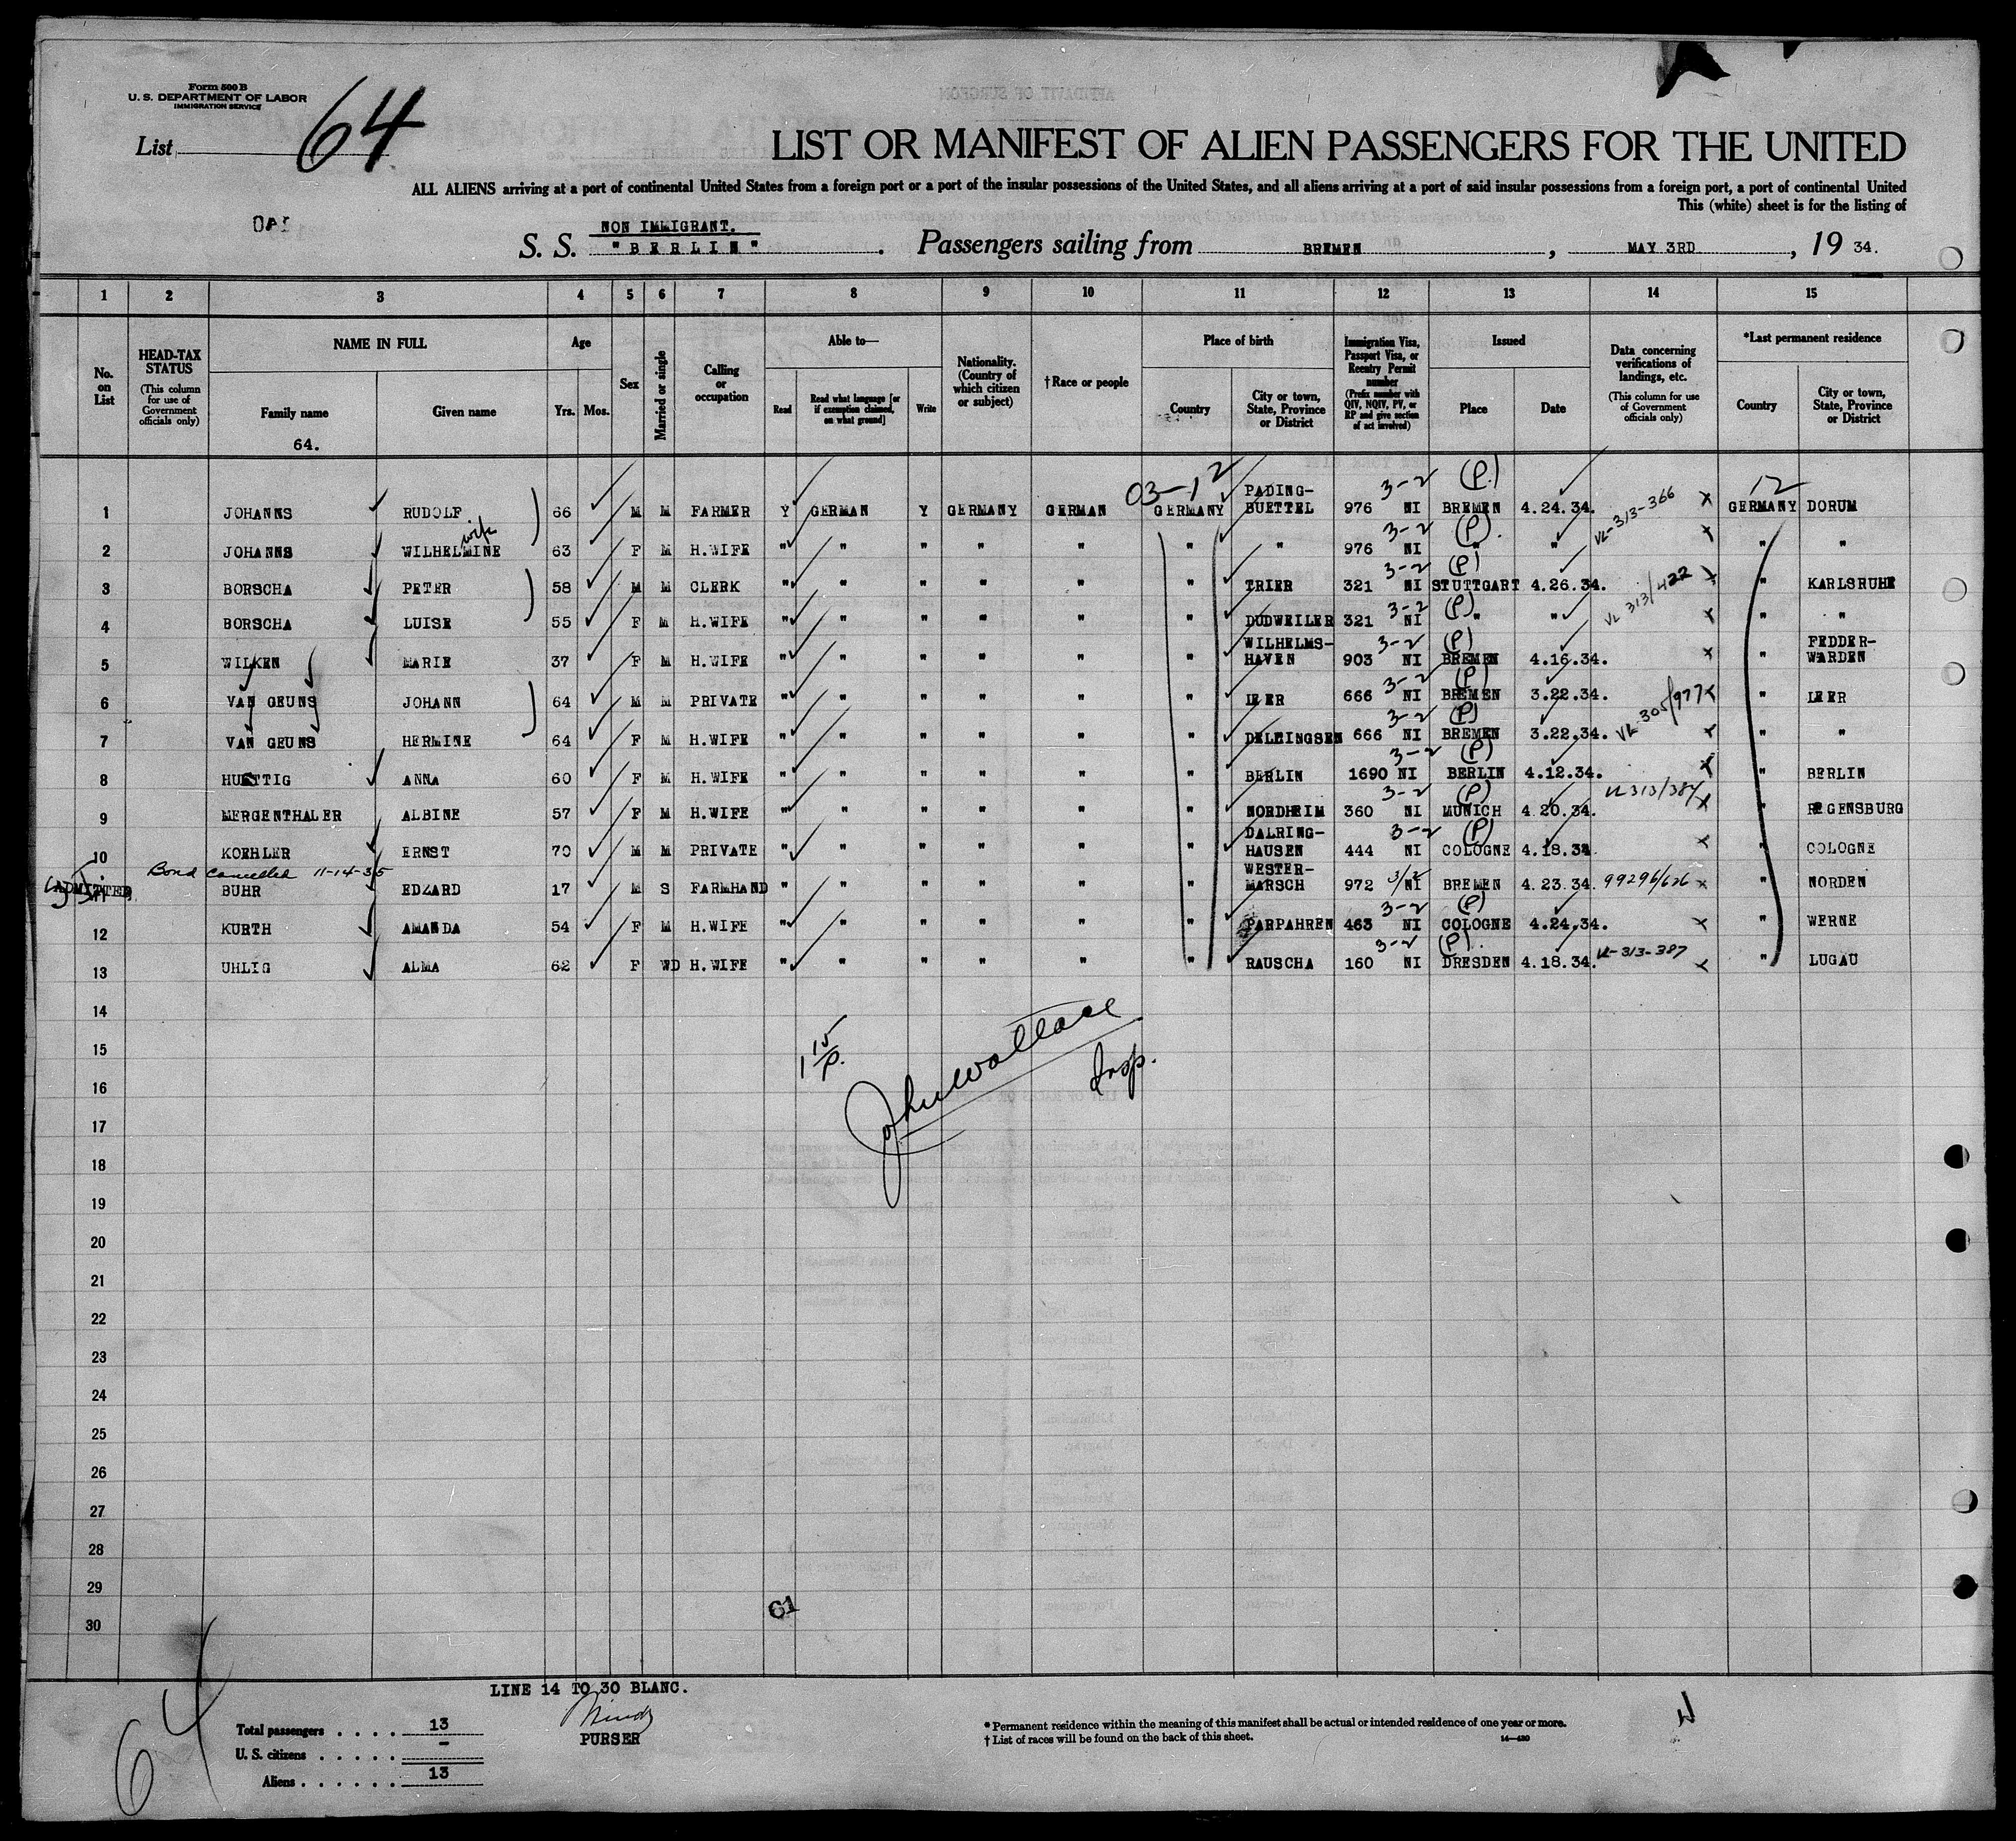 Form 500 B
U. S. DEPARTMENT OF LABOR
IMMIGRATION SERVICE
List 64
LIST OR MANIFEST OF ALIEN PASSENGERS FOR THE UNITED
ALL ALIENS arriving at a port of continental United States from a foreign port or a port of the insular possessions of the United States, and all aliens arriving at a port of said insular possessions from a foreign port, a port of continental United
This (white) sheet is for the listing of
140
NON IMMIGRANT.
S. S. "BERLIN". Passengers sailing from BREMEN, MAY 3RD, 19 34.
1 2 3 4 5 6 7 8 9 10 11 12 13 14 15
No. on List
HEAD-TAX STATUS (This column for use of Government officials only)
NAME IN FULL
Family name
64.
Given name
Age
Yrs. Mos.
Sex
Married or single
Calling or occupation
Able to—
Read
Read what language [or if exemption claimed, on what ground]
Write
Nationality. (Country of which citizen or subject)
†Race or people
Place of birth
Country
City or town, State, Province or District
Immigration Visa, Passport Visa, or Reentry Permit number (Prefix number with QIV, NQIV, PV, or RP and give section of act involved)
Issued
Place
Date
Data concerning verifications of landings, etc. (This column for use of Government officials only)
*Last permanent residence
Country
City or town, State, Province or District
03-12 3-2 (P.) 12
1 JOHANNS RUDOLF 66 M M FARMER Y GERMAN Y GERMANY GERMAN GERMANY PADING-BUETTEL 976 NI BREMEN 4.24.34. VL-313-366 X GERMANY DORUM
wife 3-2 (P).
2 JOHANNS WILHELMINE 63 F M H.WIFE " " " " " " " 976 NI " " X " "
3-2 (P)
3 BORSCHA PETER 58 M M CLERK " " " " " " TRIER 321 NI STUTTGART 4.26.34. VL 313/422 X " KARLSRUHE
3-2 (P)
4 BORSCHA LUISE 55 F M H.WIFE " " " " " " DUDWEILER 321 NI " " X " "
3-2 (P)
5 WILKEN MARIE 37 F M H.WIFE " " " " " " WILHELMS-HAVEN 903 NI BREMEN 4.16.34. X " FEDDER-WARDEN
3-2 (P)
6 VAN GEUNS JOHANN 64 M M PRIVATE " " " " " " LEER 666 NI BREMEN 3.22.34. VL-305/977 X " LEER
3-2 (P)
7 VAN GEUNS HERMINE 64 F M H.WIFE " " " " " " 666 NI BREMEN 3.22.34. X " "
3-2 (P)
8 HUETTIG ANNA 60 F M H.WIFE " " " " " " BERLIN 1690 NI BERLIN 4.12.34. X " BERLIN
3-2 (P)
9 MERGENTHALER ALBINE 57 F M H.WIFE " " " " " " NORDHEIM 360 NI MUNICH 4.20.34. VL313/384 X " REGENSBURG
3-2 (P)
10 KOEHLER ERNST 70 M M PRIVATE " " " " " " DALRING-HAUSEN 444 NI COLOGNE 4.18.34. X " COLOGNE
Bond Cancelled 11-14-35
ADMITTED 11 BUHR EDZARD 17 M S FARMHAND " " " " " " WESTER-MARSCH 972 3/2 NI BREMEN 4.23.34. 99296/626 X " NORDEN
3-2 (P)
12 KURTH AMANDA 54 F M H.WIFE " " " " " " PARPAHREN 463 NI COLOGNE 4.24.34. X " WERNE
3-2 (P).
13 UHLIG ALMA 62 F WD H.WIFE " " " " " " RAUSCHA 160 NI DRESDEN 4.18.34. VL-313-387 X " LUGAU
14
15
16
17
18
19
20
21
22
23
24
25
26
27
28
29
30
1 15/P.
John Wallace
Insp.
61
LINE 14 TO 30 BLANC.
PURSER
64
Total passengers . . . . 13
U. S. citizens . . . . . -
Aliens . . . . . . 13
* Permanent residence within the meaning of this manifest shall be actual or intended residence of one year or more.
† List of races will be found on the back of this sheet.
14—430